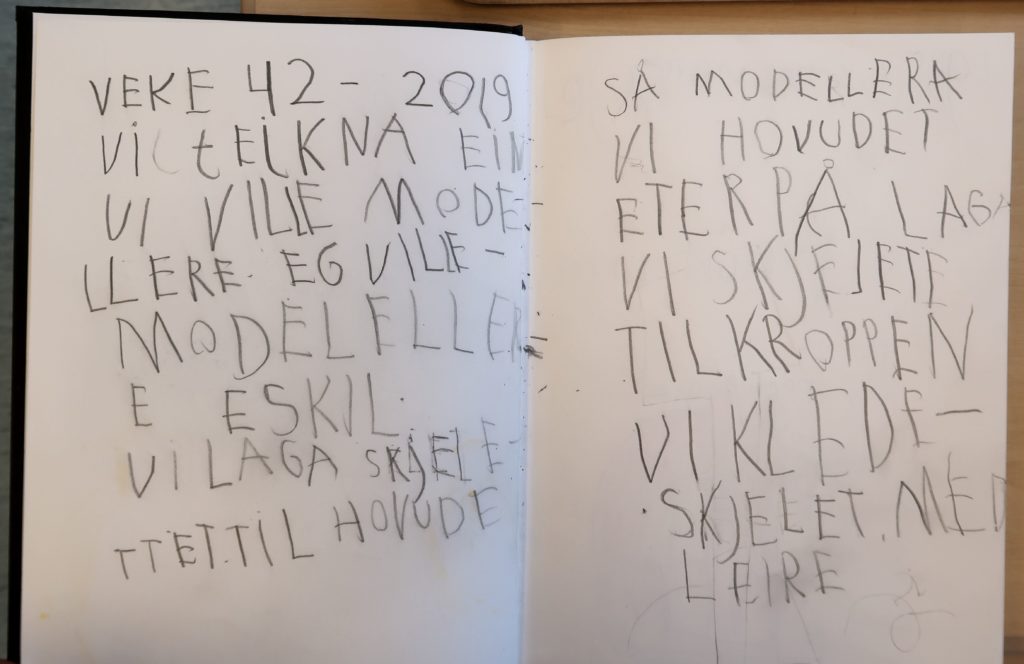 VEKE 42 - 2019
VI tEIKNA EIN
VI VILLE MODE-
LLERE. EG VILLE-
MODELELLER-
E ESKIL.
VI LAGA SKJELE-
TTET.TIL HOVUDE
SÅ MODELLERA
VI HOVUDET
ETERPÅ LAGA
VI SKJELETE
TIL KROPPEN
VI KLEDE-
SKJELET. MED
LEIRE